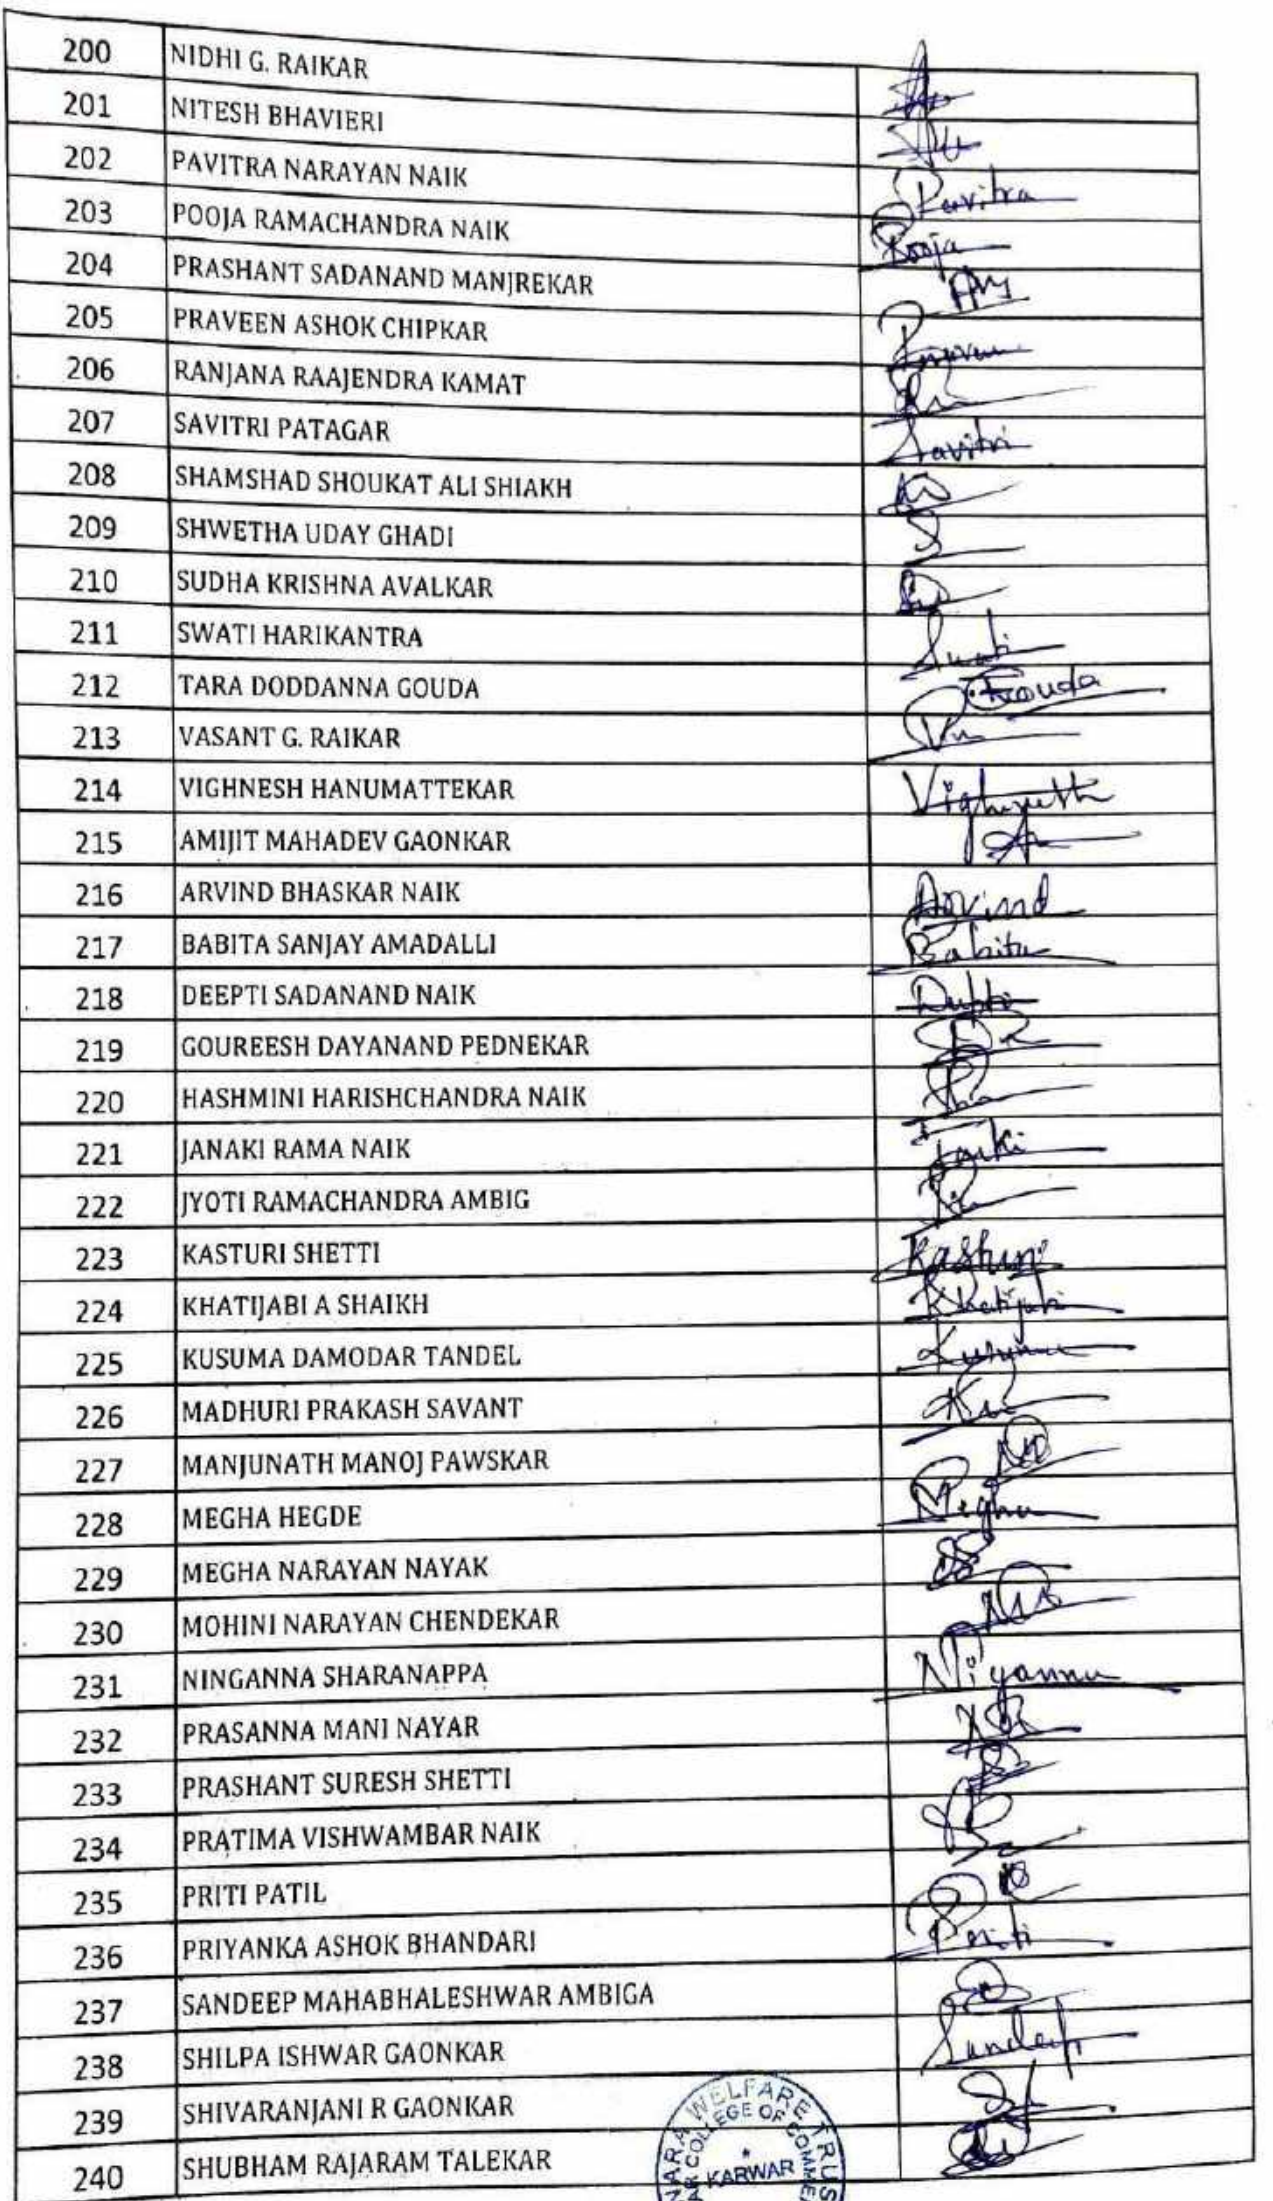 200 NIDHI G. RAIKAR
201 NITESH BHAVIERI
202 PAVITRA NARAYAN NAIK Pavitra
203 POOJA RAMACHANDRA NAIK Pooja
204 PRASHANT SADANAND MANJREKAR
205 PRAVEEN ASHOK CHIPKAR
206 RANJANA RAAJENDRA KAMAT
207 SAVITRI PATAGAR Savitri
208 SHAMSHAD SHOUKAT ALI SHIAKH
209 SHWETHA UDAY GHADI
210 SUDHA KRISHNA AVALKAR
211 SWATI HARIKANTRA Swati
212 TARA DODDANNA GOUDA Gouda
213 VASANT G. RAIKAR
214 VIGHNESH HANUMATTEKAR
215 AMIJIT MAHADEV GAONKAR
216 ARVIND BHASKAR NAIK Arvind
217 BABITA SANJAY AMADALLI Babita
218 DEEPTI SADANAND NAIK
219 GOUREESH DAYANAND PEDNEKAR
220 HASHMINI HARISHCHANDRA NAIK
221 JANAKI RAMA NAIK
222 JYOTI RAMACHANDRA AMBIG
223 KASTURI SHETTI
224 KHATIJABI A SHAIKH Khatijabi
225 KUSUMA DAMODAR TANDEL
226 MADHURI PRAKASH SAVANT
227 MANJUNATH MANOJ PAWSKAR
228 MEGHA HEGDE Megha
229 MEGHA NARAYAN NAYAK
230 MOHINI NARAYAN CHENDEKAR
231 NINGANNA SHARANAPPA
232 PRASANNA MANI NAYAR
233 PRASHANT SURESH SHETTI
234 PRATIMA VISHWAMBAR NAIK
235 PRITI PATIL
236 PRIYANKA ASHOK BHANDARI
237 SANDEEP MAHABHALESHWAR AMBIGA
238 SHILPA ISHWAR GAONKAR Sandeep
239 SHIVARANJANI R GAONKAR
240 SHUBHAM RAJARAM TALEKAR
WELFARE
OF
KARWAR